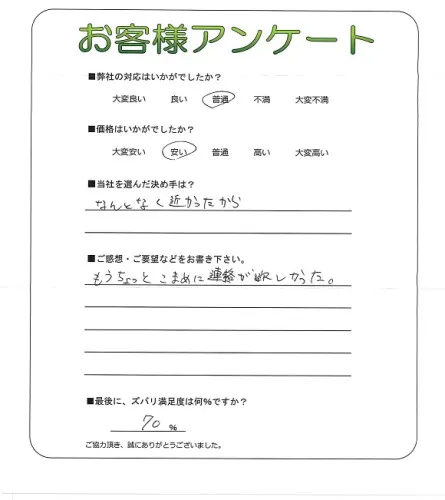 お客様アンケート
■弊社の対応はいかがでしたか？
大変良い 良い 普通 不満 大変不満
■価格はいかがでしたか？
大変安い 安い 普通 高い 大変高い
■当社を選んだ決め手は？
なんとなく近かったから
■ご感想・ご要望などをお書き下さい。
もうちょっとこまめに連絡が欲しかった。
■最後に、ズバリ満足度は何％ですか？
70 %
ご協力頂き、誠にありがとうございました。